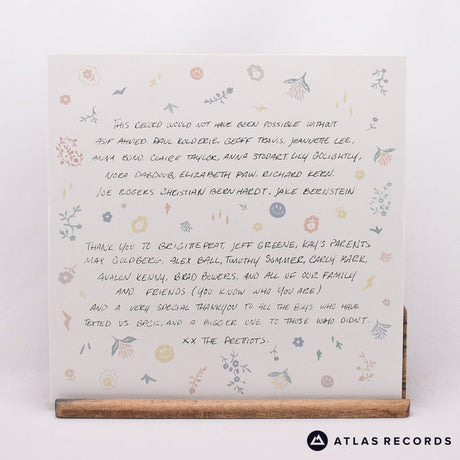 THIS RECORD WOULD NOT HAVE BEEN POSSIBLE WITHOUT
ASIF AHMED. PAUL KOLDERIE, GEOFF TRAVIS, JEANNETTE LEE,
ANNA BOND CLAIRE TAYLOR, ANNA STODART, LILY GOLIGHTLY,
NORA DABDOUB, ELIZABETH PAW, RICHARD KERN.
JOE ROGERS. CHRISTIAN BERNHARDT. JAKE BERNSTEIN
THANK YOU TO BRIGITTE PRAT, JEFF GREENE, KAY'S PARENTS
MAX GOLDBERG. ALEX BALL, TIMOTHY SUMMER, CARLY MARK,
AVALON KENNY, BRAD BOWERS, AND ALL OF OUR FAMILY
AND FRIENDS (YOU KNOW WHO YOU ARE)
AND A VERY SPECIAL THANKYOU TO ALL THE BOYS WHO HAVE
TEXTED US BACK, AND A BIGGER ONE TO THOSE WHO DIDN'T.
XX THE PRETTIOTS.
ATLAS RECORDS